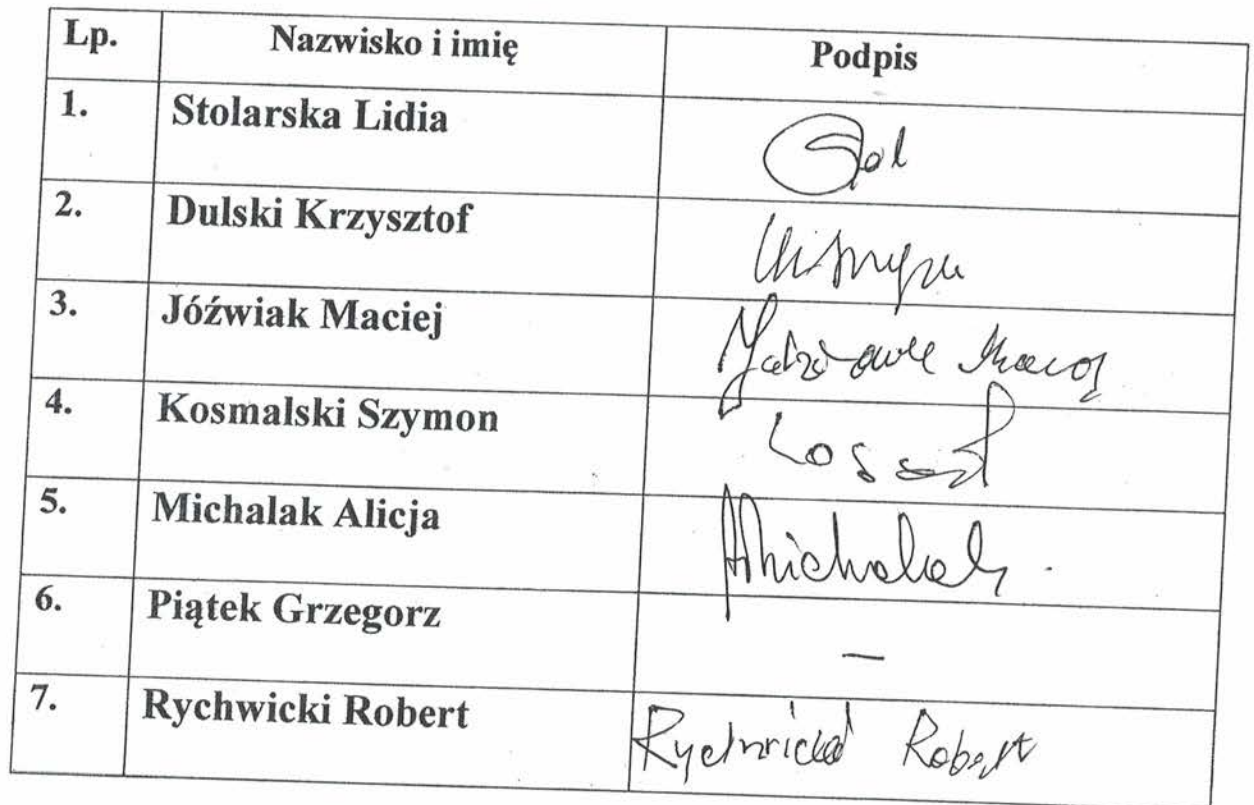 Lp. Nazwisko i imię Podpis
1. Stolarska Lidia
2. Dulski Krzysztof
3. Jóźwiak Maciej
4. Kosmalski Szymon
5. Michalak Alicja AMichalak
6. Piątek Grzegorz —
7. Rychwicki Robert Rychwicki Robert